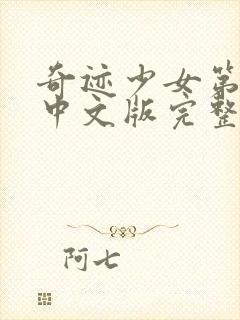 奇迹少女第
中文版完整
阿七